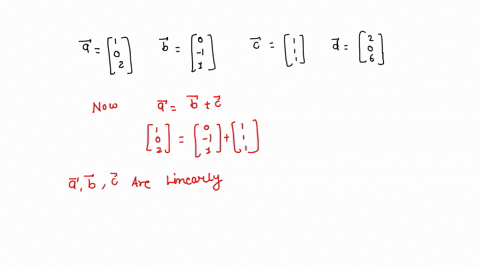 a⃗ = [1 0 2] b⃗ = [0 -1 1] c⃗ = [1 1 1] d⃗ = [2 0 6]
Now a⃗ = b⃗ + c⃗
[1 0 2] = [0 -1 1] + [1 1 1]
a⃗, b⃗, c⃗ Are Linearly